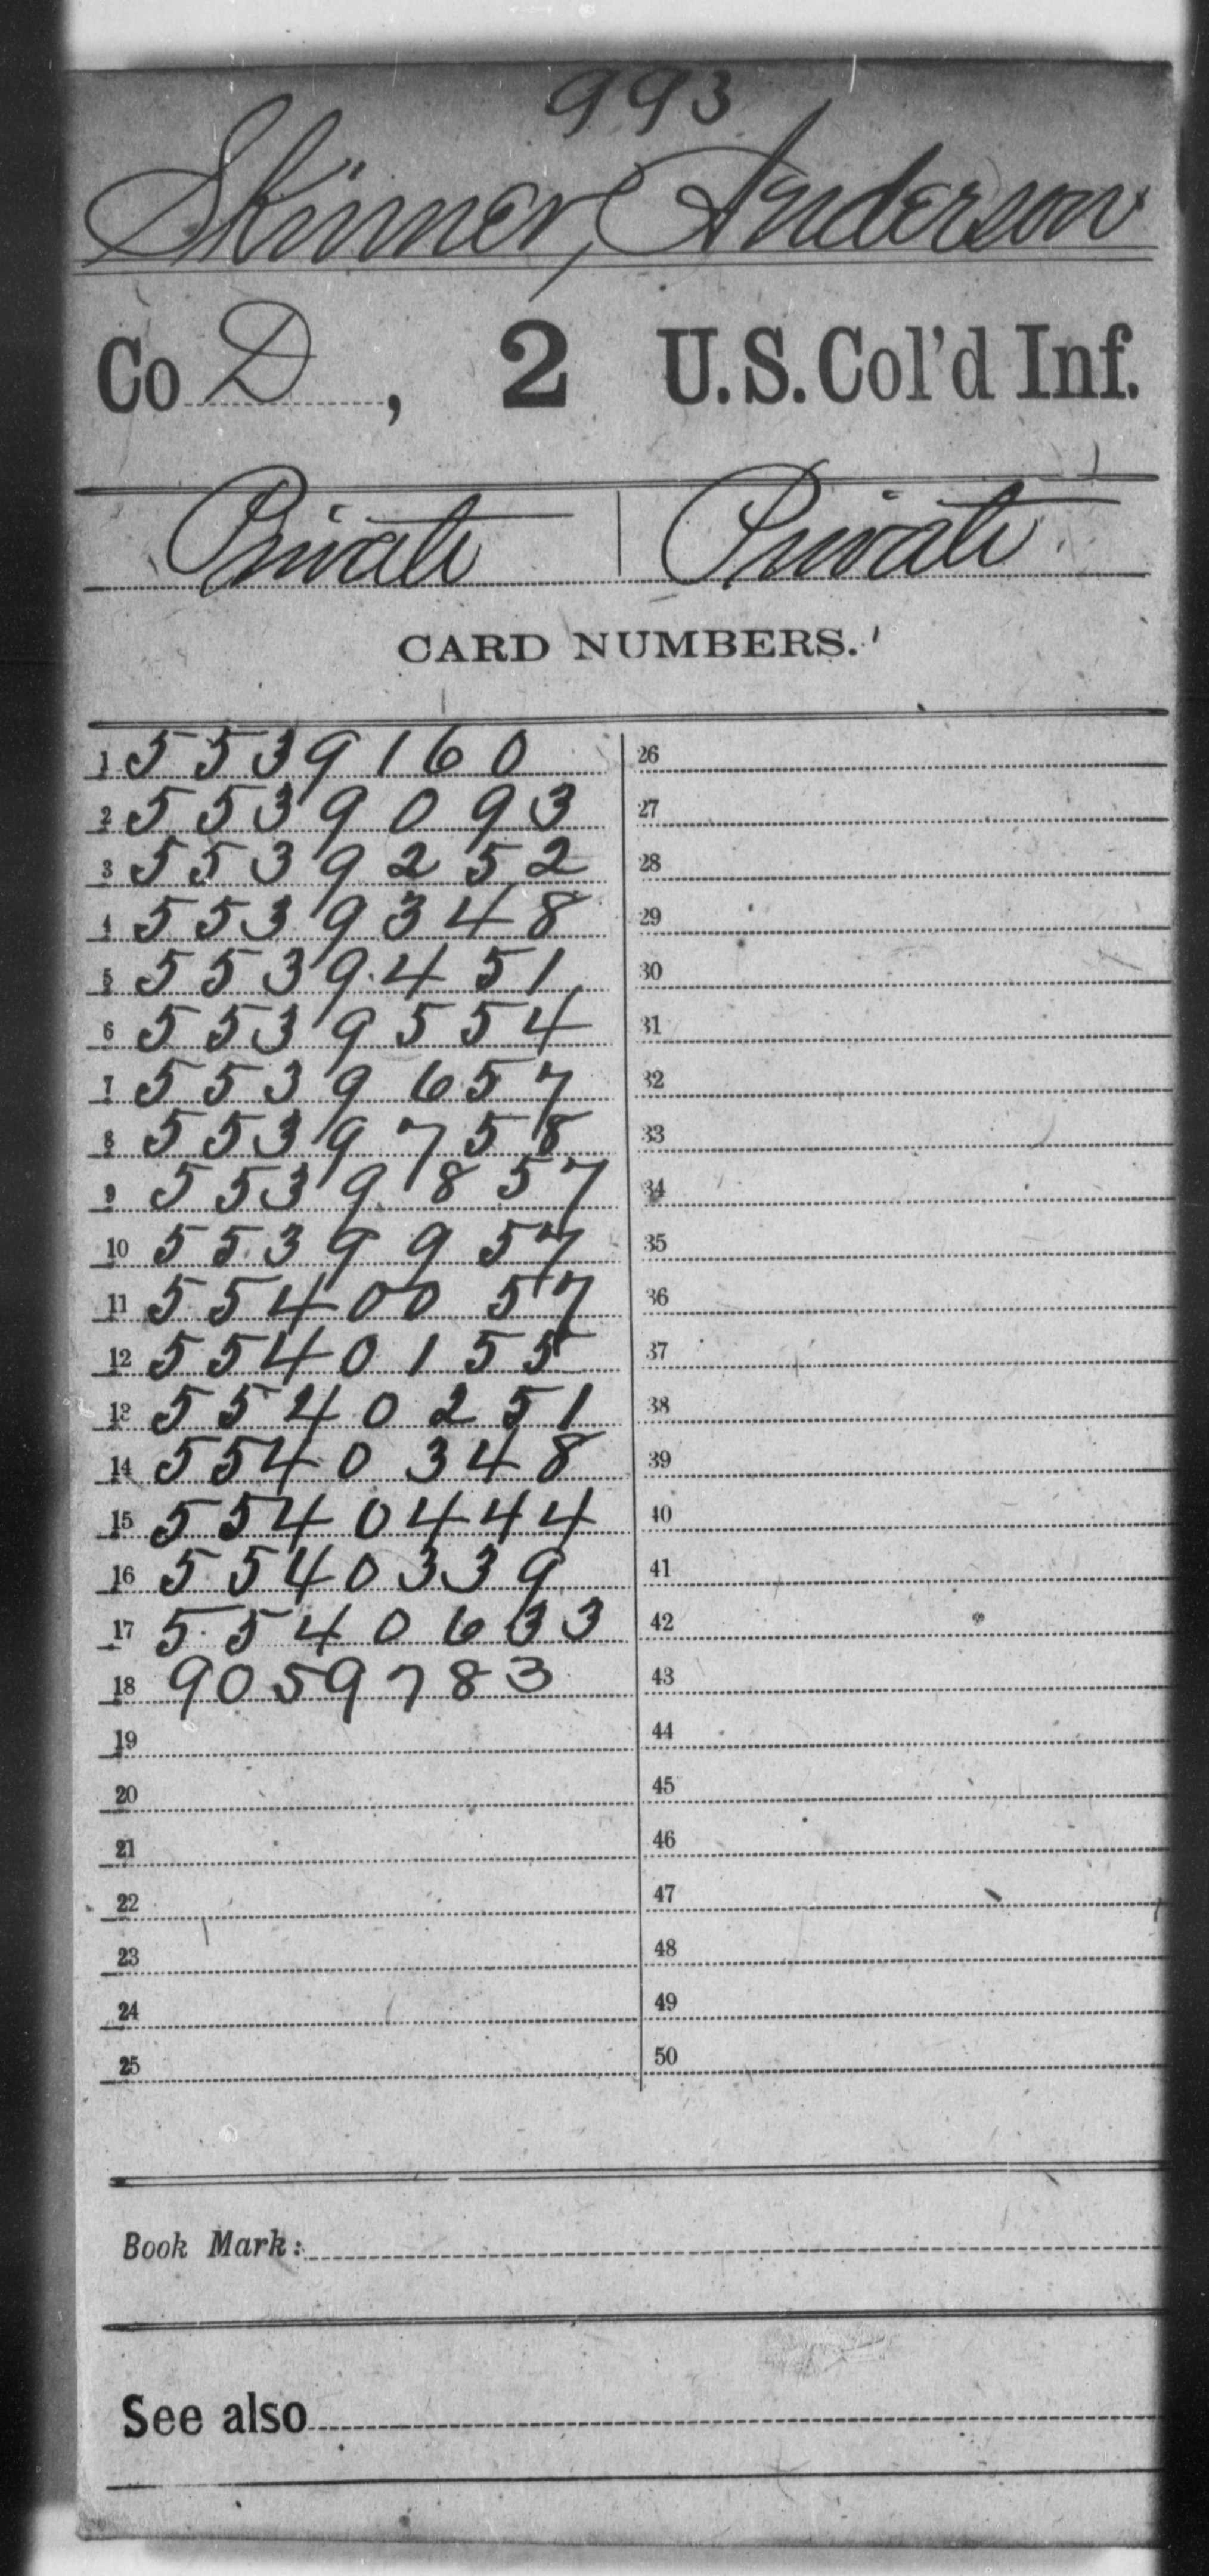 993
Skinner, Anderson
Co D, 2 U.S. Col'd Inf.
Private | Private
CARD NUMBERS.
1 5539160 26
2 5539093 27
3 5539252 28
4 5539348 29
5 5539451 30
6 5539554 31
7 5539657 32
8 5539758 33
9 5539857 34
10 5539957 35
11 5540057 36
12 5540155 37
13 5540251 38
14 5540348 39
15 5540444 40
16 5540339 41
17 5540633 42
18 9059783 43
19 44
20 45
21 46
22 47
23 48
24 49
25 50
Book Mark:
See also